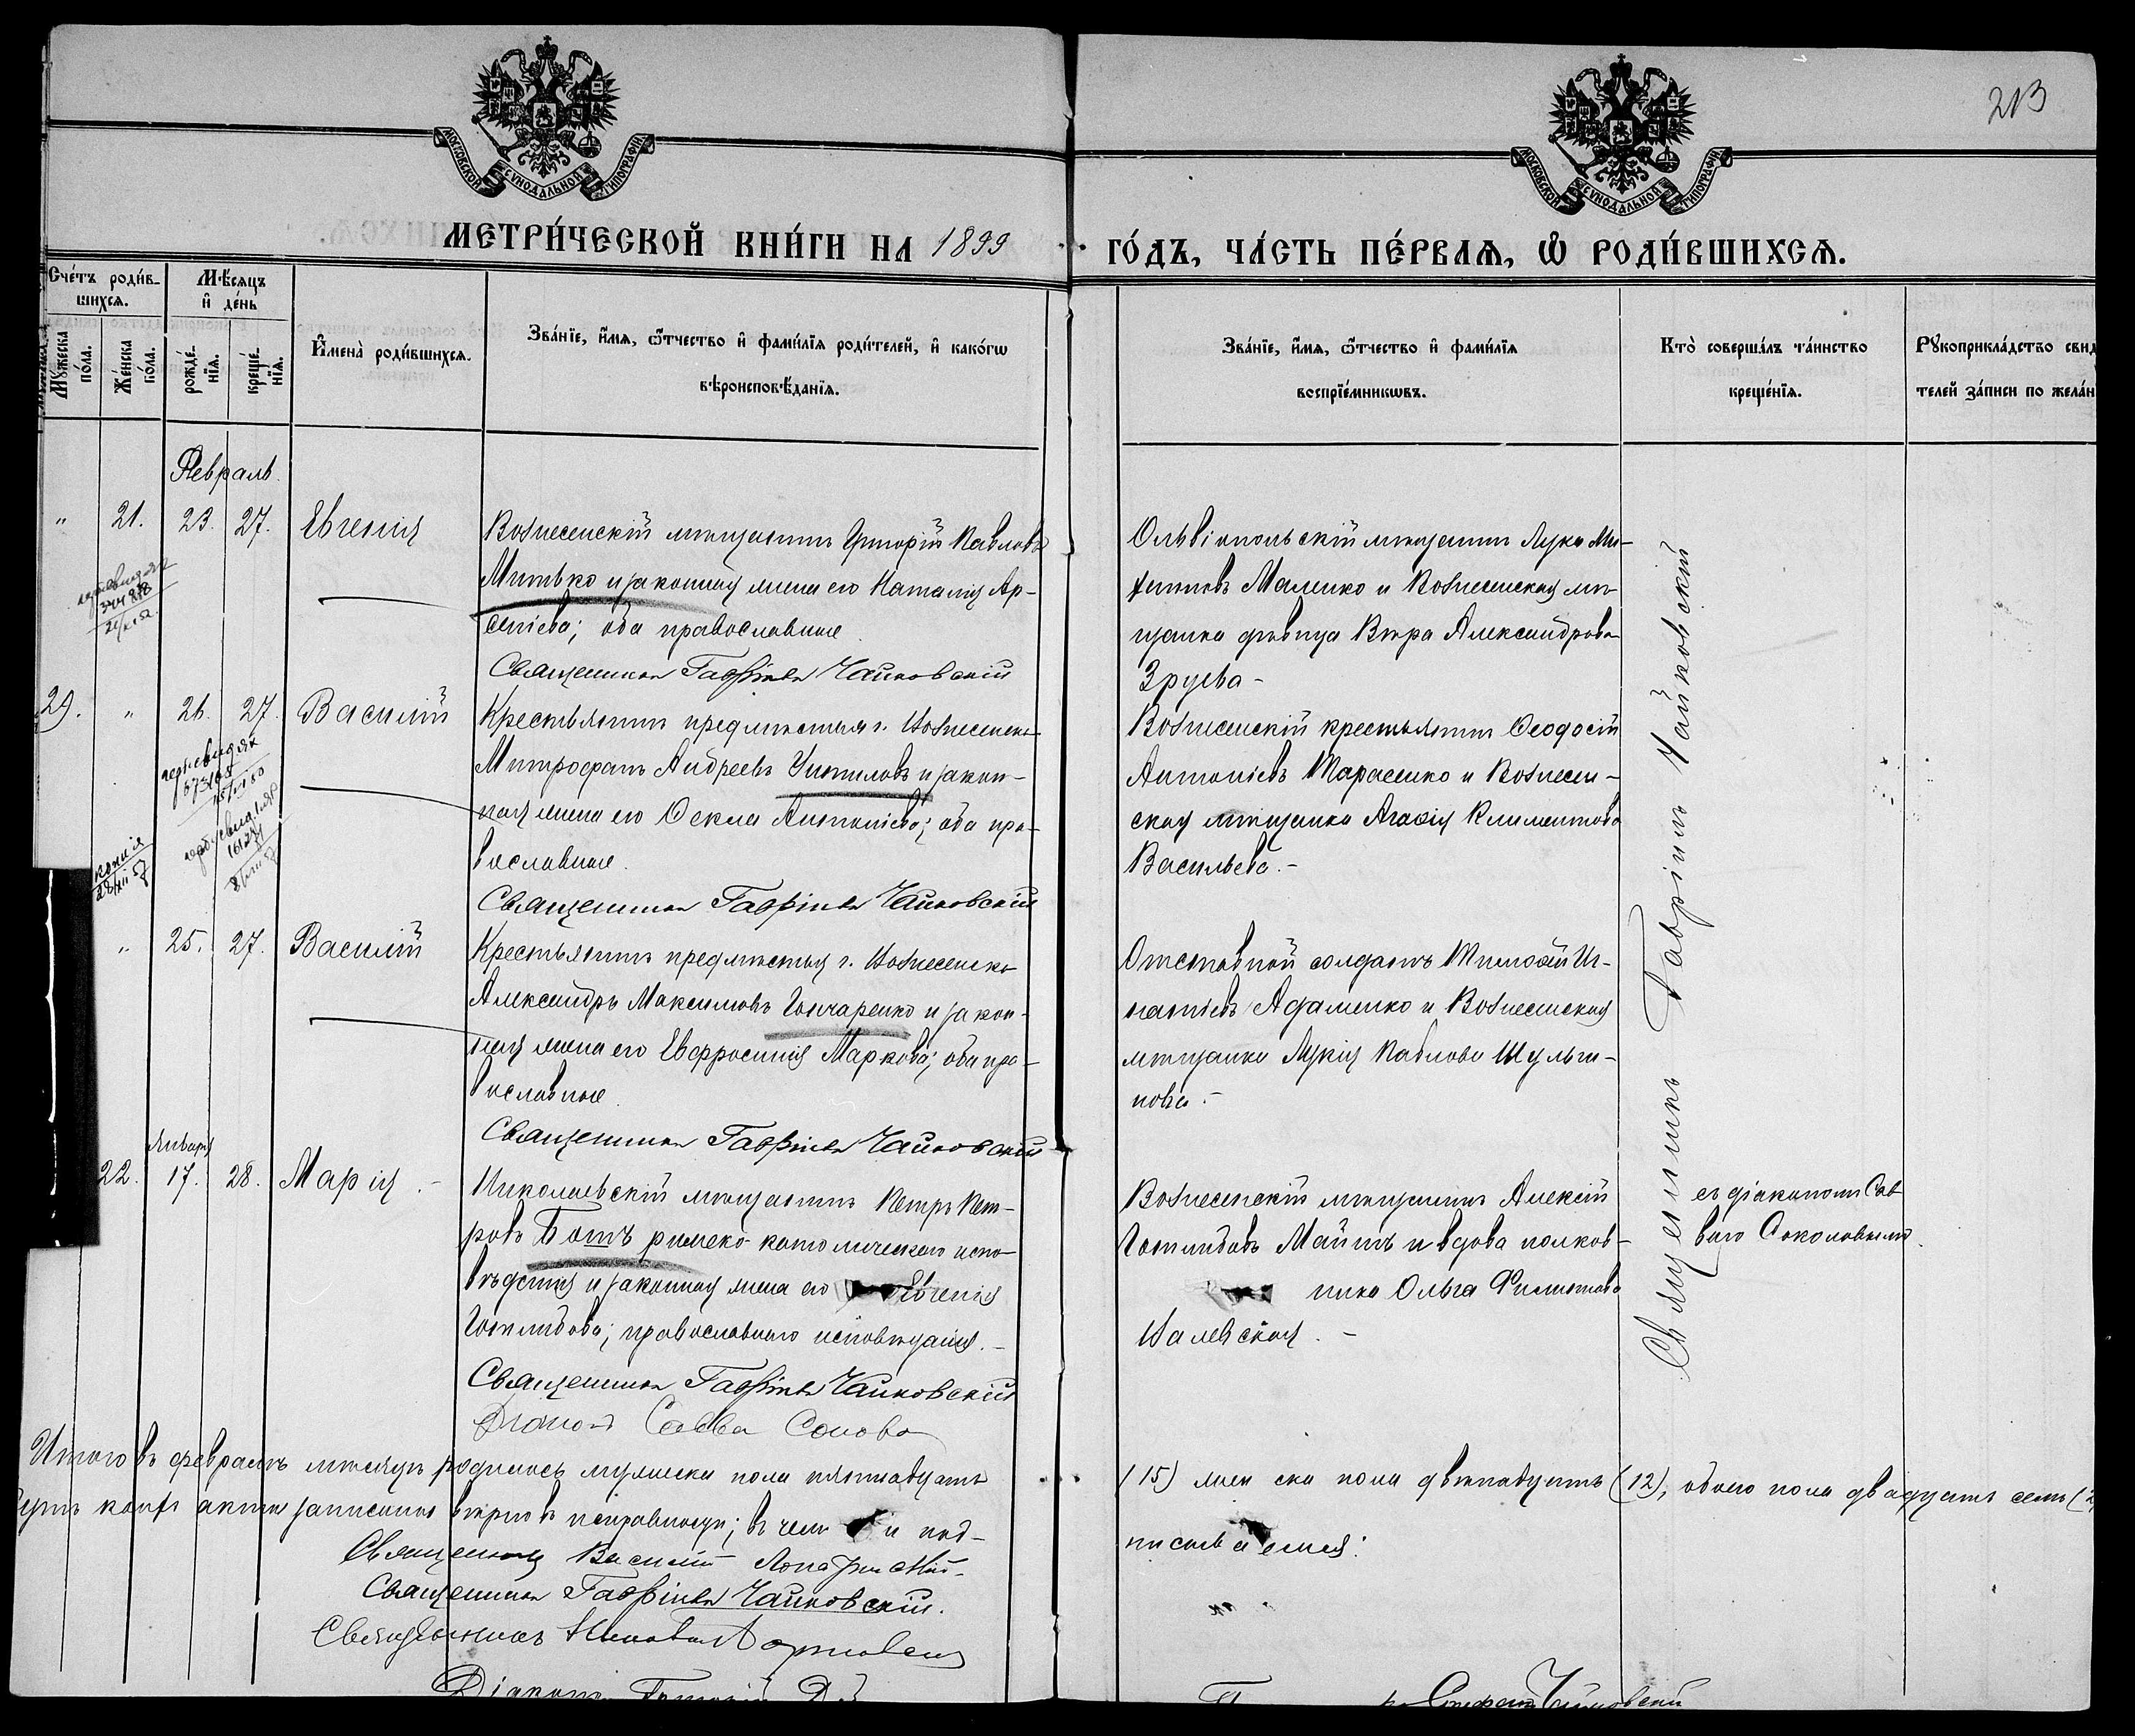 213
МОСКОВСКОЙ СѴНОДАЛЬНОЙ ТИПОГРАФІИ
МОСКОВСКОЙ СѴНОДАЛЬНОЙ ТИПОГРАФІИ
МЕТРИ́ЧЕСКОЙ КНИ́ГИ НА 1899
ГО́ДЪ, ЧА́СТЬ ПЕ́РВАѦ, Ѡ РОДИ́ВШИХСѦ.
Сче́тъ роди́в-
шихсѧ.
Мꙋ́жеска по́ла.
Же́нска по́ла.
Мѣ́сѧцъ
и҆ де́нь
рожде́-
нїѧ.
креще́-
нїѧ.
И҆мена̀ роди́вшихсѧ.
Зва́нїе, и҆́мѧ, ѻ҆́тчество и҆ фамі́лїѧ роди́телей, и҆ како́гѡ
вѣроисповѣ́данїѧ.
Зва́нїе, и҆́мѧ, ѻ҆́тчество и҆ фамі́лїѧ
воспрїе́мникѡвъ.
Кто̀ соверша́лъ та́инство
креще́нїѧ.
Рꙋкоприкла́дство свид
телей за́писи по жела́н
Февраль
" 21. 23. 27. Евгенія
Вознесенскій мѣщанинъ Григорій Павловъ
Митько и законная жена его Наталія Ар-
сеніева; оба православные
Священникъ Гавріилъ Чайковскій
Ольвіопольскій мѣщанинъ Лука Ми-
Маленко и Вознесенская мѣ-
щанка дѣвица Вѣра Александрова
Зруева -
29. " 26. 27. Василій
Крестьянинъ предмѣстья г. Вознесенска
Митрофанъ Андреевъ и закон-
ная жена его Ѳекла Антоніева; оба пра-
вославные.
Священникъ Гавріилъ Чайковскій
Вознесенскій крестьянинъ Ѳеодосій
Антоніевъ Тарасенко и Вознесен-
ская мѣщанка Агаѳія Климентова
Васильева. -
копія
28/XII 57
" 25. 27. Василій
Крестьянинъ предмѣстья г. Вознесенска
Александръ Максимовъ Гончаренко и закон-
ная жена его Евфросинія Маркова; оба пра-
вославные
Священникъ Гавріилъ Чайковскій
Отставной солдатъ Тимоѳей Иг-
натіевъ Адаменко и Вознесенская
мѣщанка Лукія Павлова Шульги-
нова. -
Января
22. 17. 28. Марія. -
Николаевскій мѣщанинъ Петръ Пет-
ровъ Ботъ римско-католическаго испо-
вѣданія и законная жена его Евгенія
Готлибова; православнаго исповѣданія. -
Священникъ Гавріилъ Чайковскій
Діаконъ Савва
Вознесенскій мѣщанинъ Алексій
Готлибовъ Майтъ и вдова полков-
ника Ольга Филиппова
Валевская. -
Священникъ Гавріилъ Чайковскій
съ діакономъ Сав-
вою Соколовымъ.
Итого въ февралѣ мѣсяцѣ родилось мужеска пола пятнадцать
(15) женска пола двѣнадцать (12), обоего пола двадцать семь (2
акты записаны вѣрно въ исправности; въ чемъ и под-
писываемся:
Священникъ Василій
Священникъ Гавріилъ Чайковскій.
Священникъ
Діаконъ